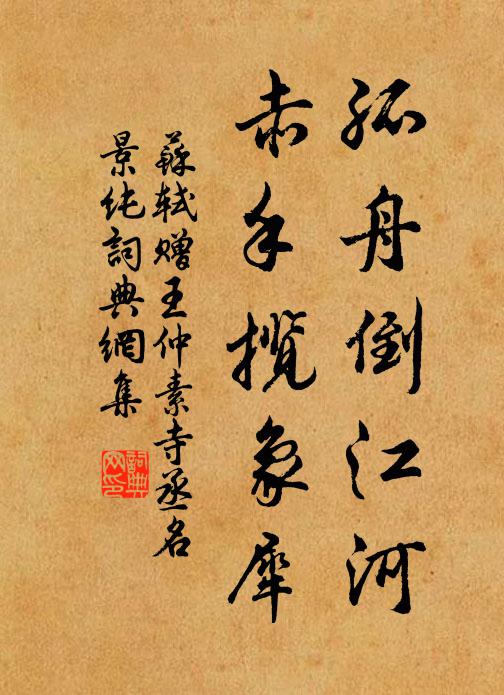 孤舟倒江河
赤手攬象犀
蘇軾贈王仲素寺丞名
景純詞典網集
詞典
网印